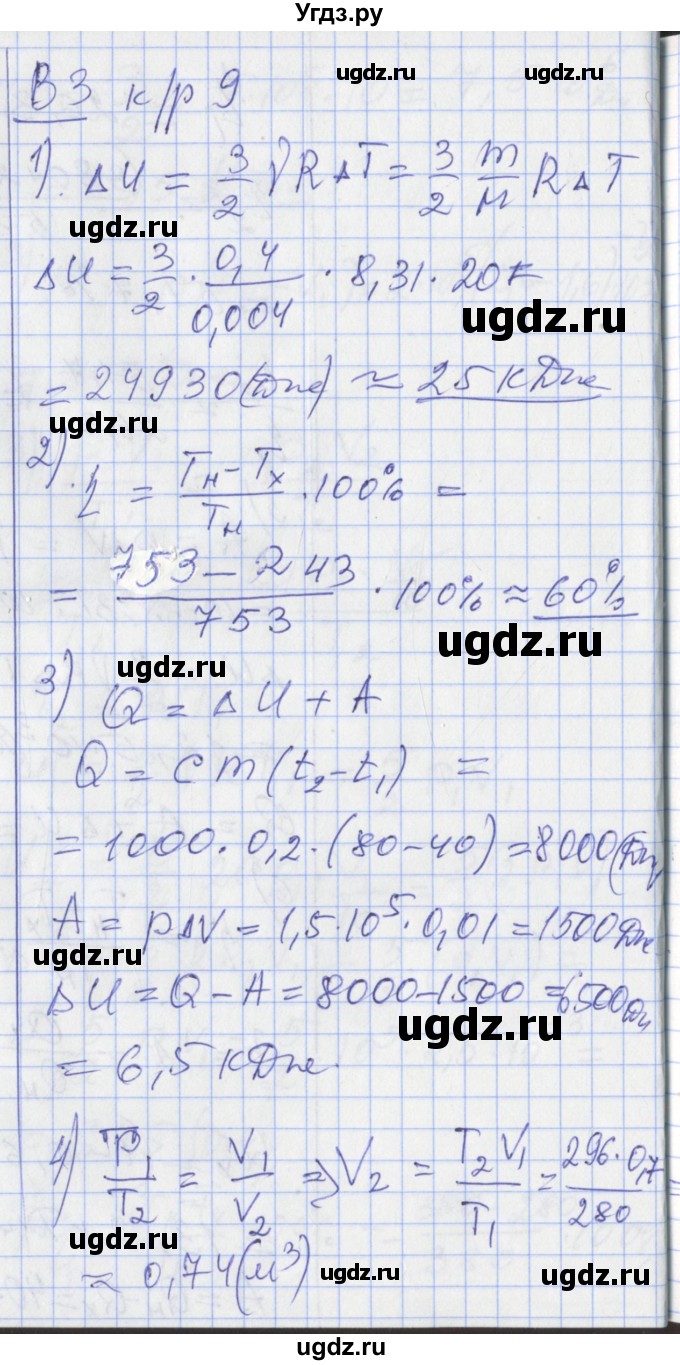 Угдз.ру
В3 к/р 9
ugdz.ru ugdz.ru
1). ΔU = 3/2 νRΔT = 3/2 m/M RΔT
ugdz.ru
ΔU = 3/2 · 0,4/0,004 · 8,31 · 20 =
ugdz.ru
= 24930(Дж) ≈ 25 кДж
ugdz.ru
2). η = (Tн – Tх)/Tн · 100% =
= (753 – 243)/753 · 100% ≈ 60%
ugdz.ru
ugdz.ru
3) Q = ΔU + A
Q = cm(t₂ – t₁) =
= 1000 · 0,2 · (80 – 40) = 8000(Дж)
A = pΔV = 1,5 · 10⁵ · 0,01 = 1500 Дж
ugdz.ru
ΔU = Q – A = 8000 – 1500 = 6500 Дж
ugdz.ru
= 6,5 кДж.
4) T₁/T₂ = V₁/V₂ ⇒ V₂ = T₂V₁/T₁ = 296 · 0,7/280 =
ugdz.ru
≈ 0,74(м³)
ugdz.ru ugdz.ru
ugdz.ru